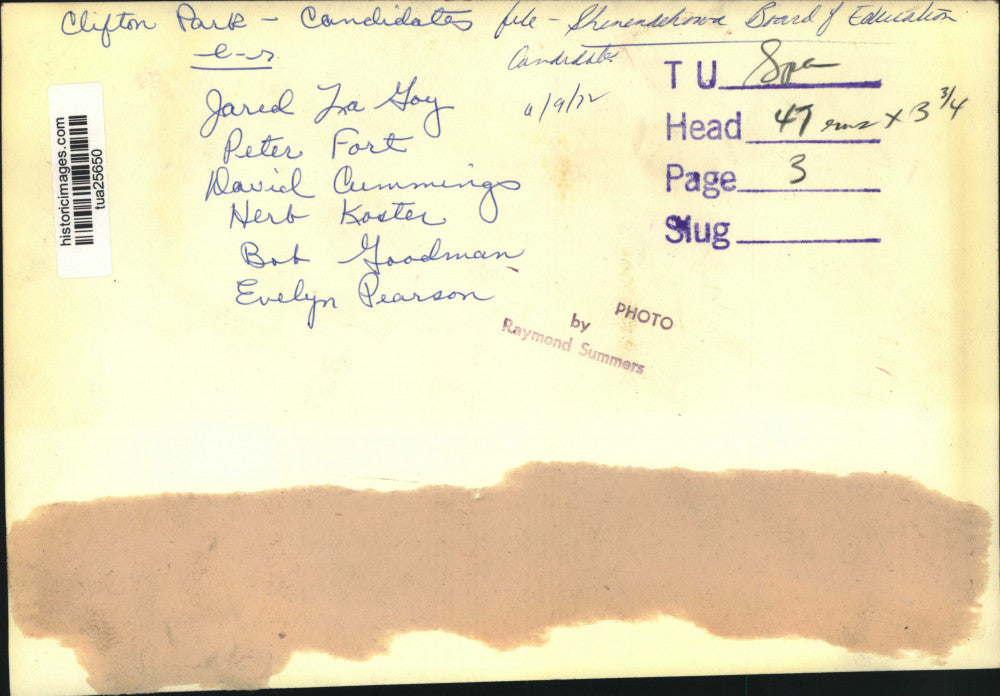 Clifton Park - Candidates file - Shenendehowa Board of Education
Candidates
l-r
Jared La Goy
Peter Fort
David Cummings
Herb Koster
Bob Goodman
Evelyn Pearson
6/9/72
TU Spa
Head 47 ems x 3 3/4
Page 3
Slug
PHOTO
by
Raymond Summers
historicimages.com
tua25650